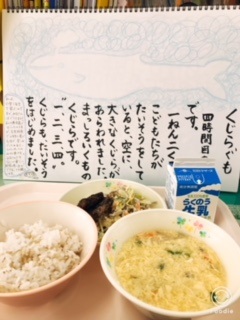 くじらぐも
四時間目の
一ねん二くみ
です。
こどもたちが
たいそうをして
いると、空に、
大きなくじらが
あらわれました。
まっしろいくもの
くじらです。
「一、二、三、四。」
くじらも、たいそう
をはじめました。
らくのう
牛乳
Foodie